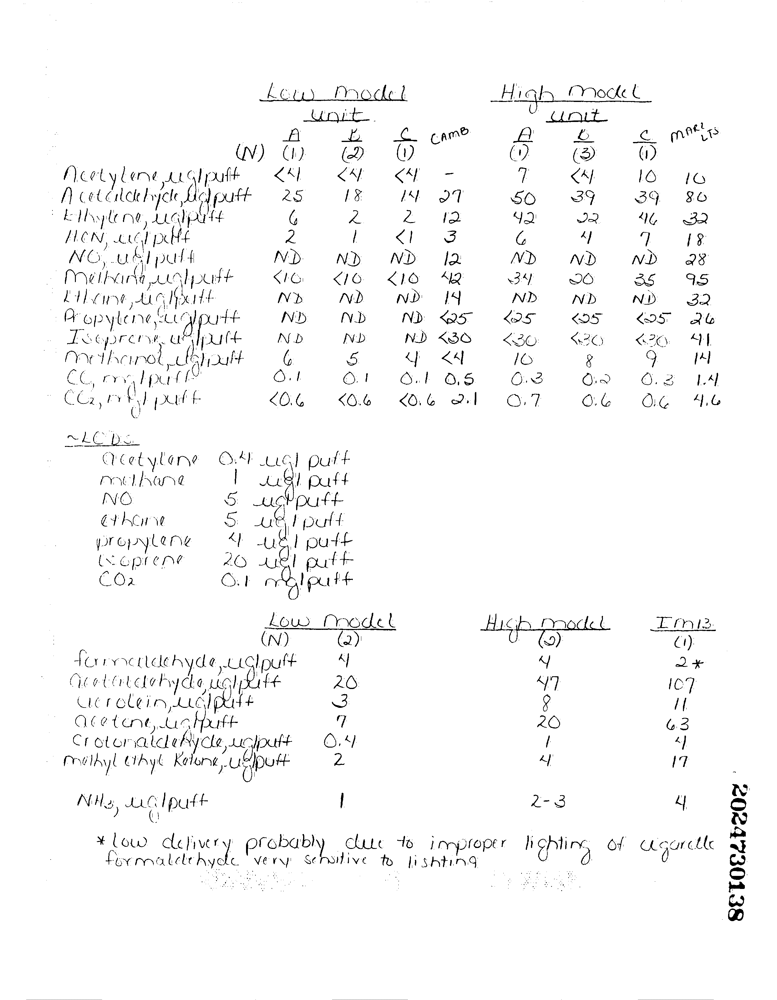 Low Model High Model
Unit Unit
A B C CAMB A B C MARL LTS
(N) (1) (2) (1) (1) (3) (1)
Acetylene, ug/puff <4 <4 <4 - 7 <4 10 10
Acetaldehyde, ug/puff 25 18 14 27 50 39 39 80
Ethylene, ug/puff 6 2 2 12 42 22 46 32
HCN, ug/puff 2 1 <1 3 6 4 7 18
NO, ug/puff ND ND ND 12 ND ND ND 28
Methane, ug/puff <10 <10 <10 42 34 20 35 95
Ethane, ug/puff ND ND ND 14 ND ND ND 32
Propylene, ug/puff ND ND ND <25 <25 <25 <25 26
Isoprene, ug/puff ND ND ND <30 <30 <30 <30 41
Methanol, ug/puff 6 5 4 <4 10 8 9 14
CO, mg/puff 0.1 0.1 0.1 0.5 0.3 0.2 0.3 1.4
CO2, mg/puff <0.6 <0.6 <0.6 2.1 0.7 0.6 0.6 4.6
~LODs
acetylene 0.4 ug/puff
methane 1 ug/puff
NO 5 ug/puff
ethane 5 ug/puff
propylene 4 ug/puff
isoprene 20 ug/puff
CO2 0.1 mg/puff
Low Model High Model IM13
(N) (2) (2) (1)
formaldehyde, ug/puff 4 4 2*
acetaldehyde, ug/puff 20 47 107
acrolein, ug/puff 3 8 11
acetone, ug/puff 7 20 63
Crotonaldehyde, ug/puff 0.4 1 4
methyl ethyl Ketone, ug/puff 2 4 17
NH3, ug/puff 1 2-3 4
* low delivery probably due to improper lighting of cigarette
formaldehyde very sensitive to lighting
2024730138